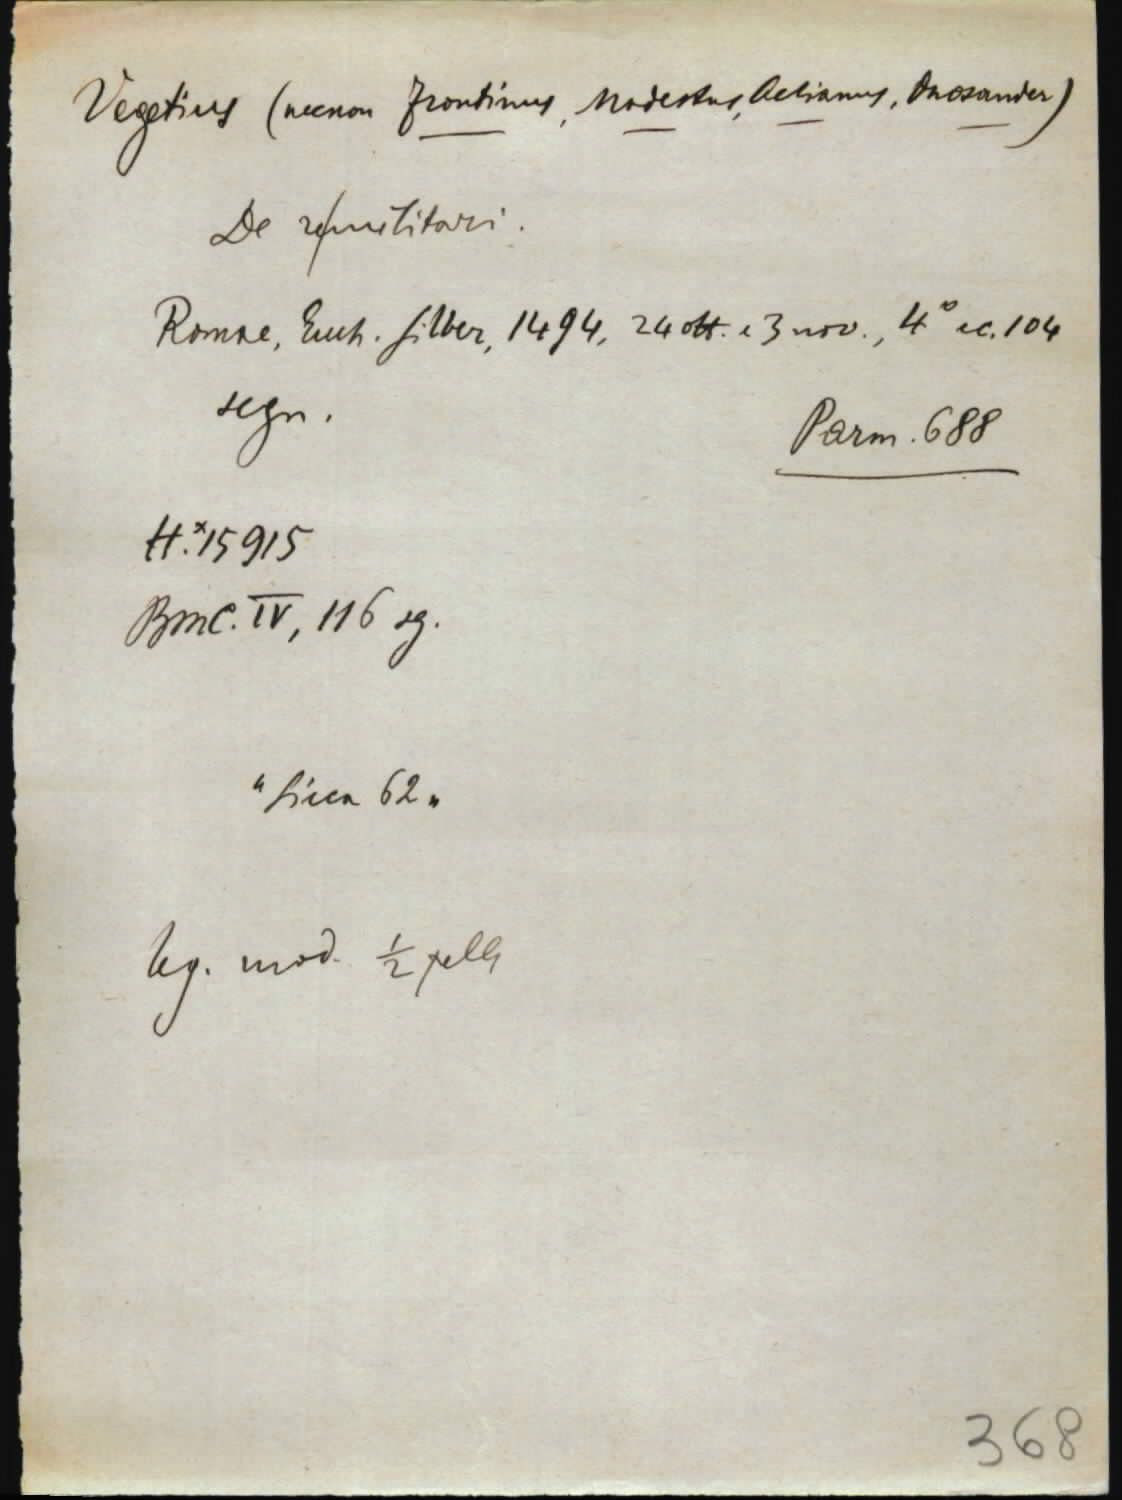 Vegetius (necnon Frontinus, Modestus, Aelianus, Onosander)
De re militari.
Romae, Euch. Silber, 1494, 24 ott. e 3 nov., 4° cc. 104
segn.
Parm. 688
H.*15915
BMC. IV, 116 sg.
"Sicca 62"
leg. mod. ½ pelle
368